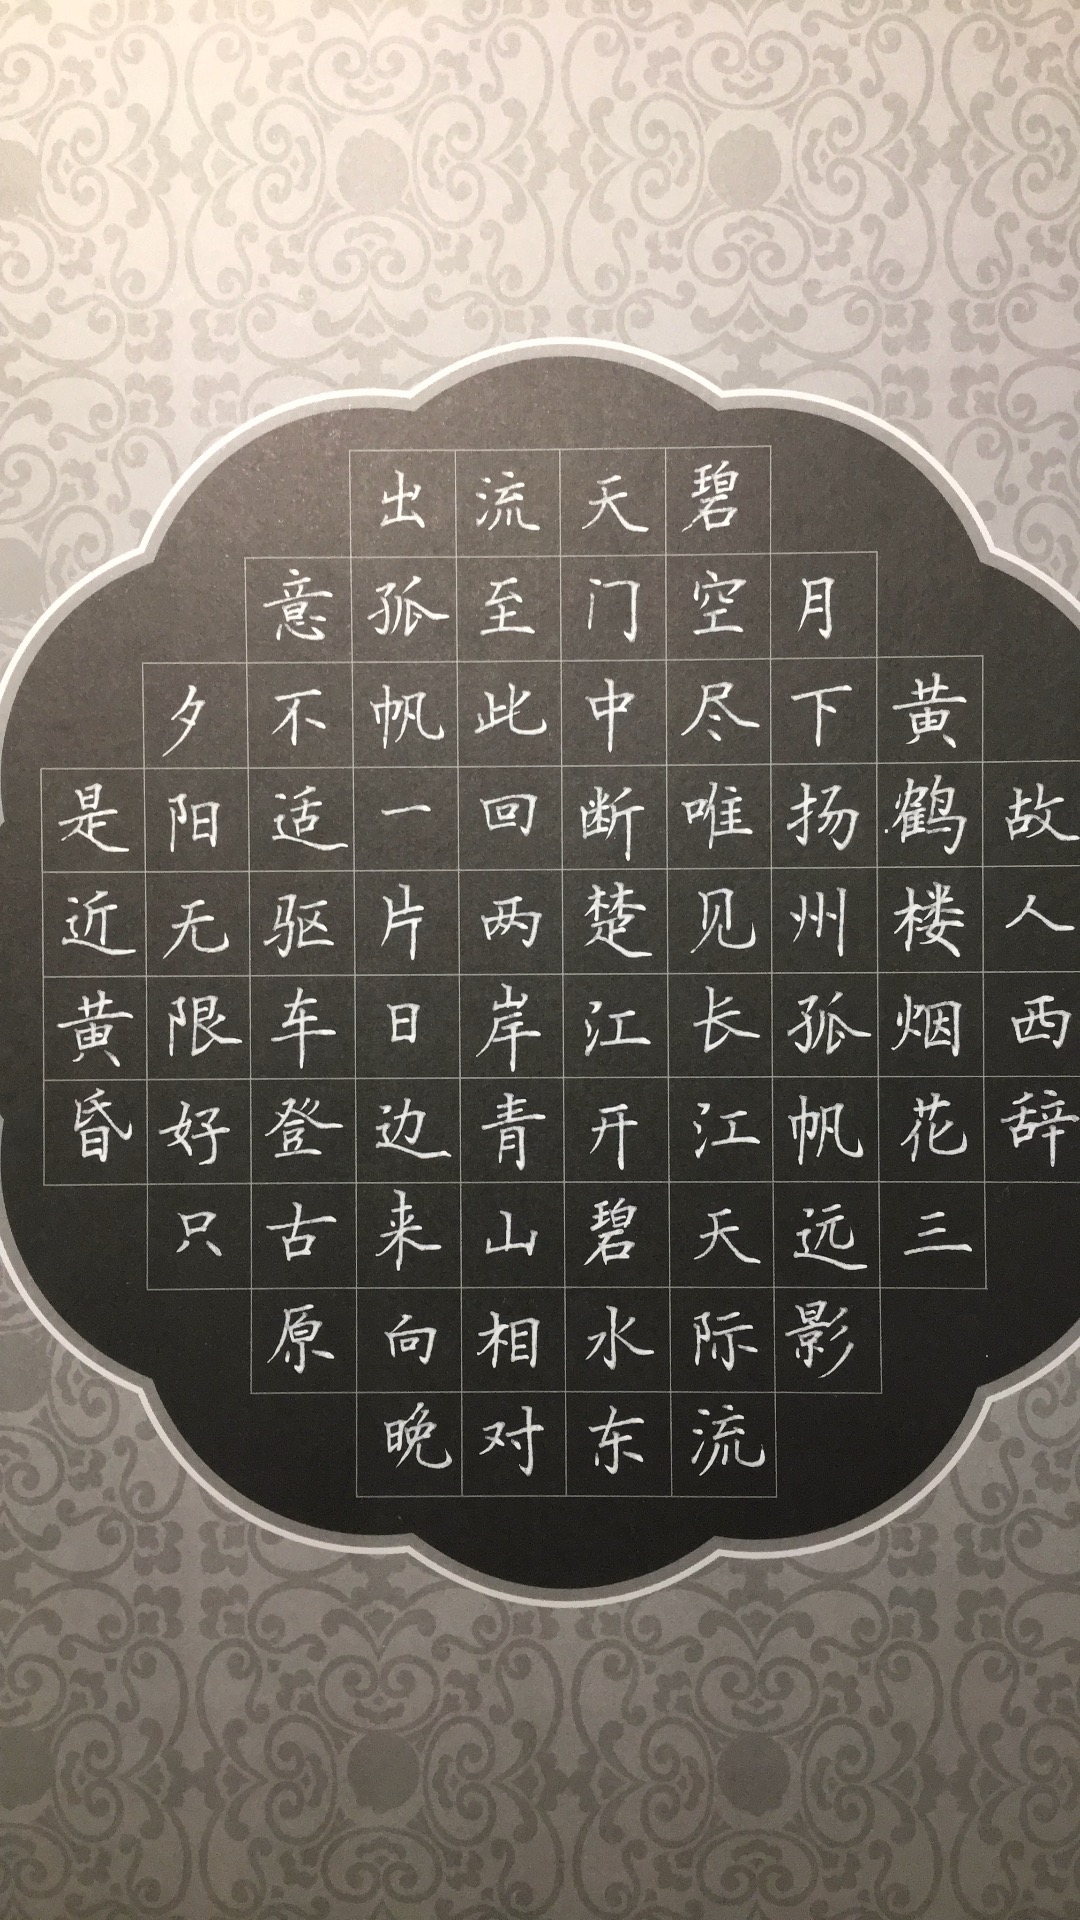 故人西辞
黄鹤楼烟花三
月下扬州孤帆远影
碧空尽唯见长江天际流
天门中断楚江开碧水东
流至此回两岸青山相对
出孤帆一片日边来向晚
意不适驱车登古原
夕阳无限好只
是近黄昏